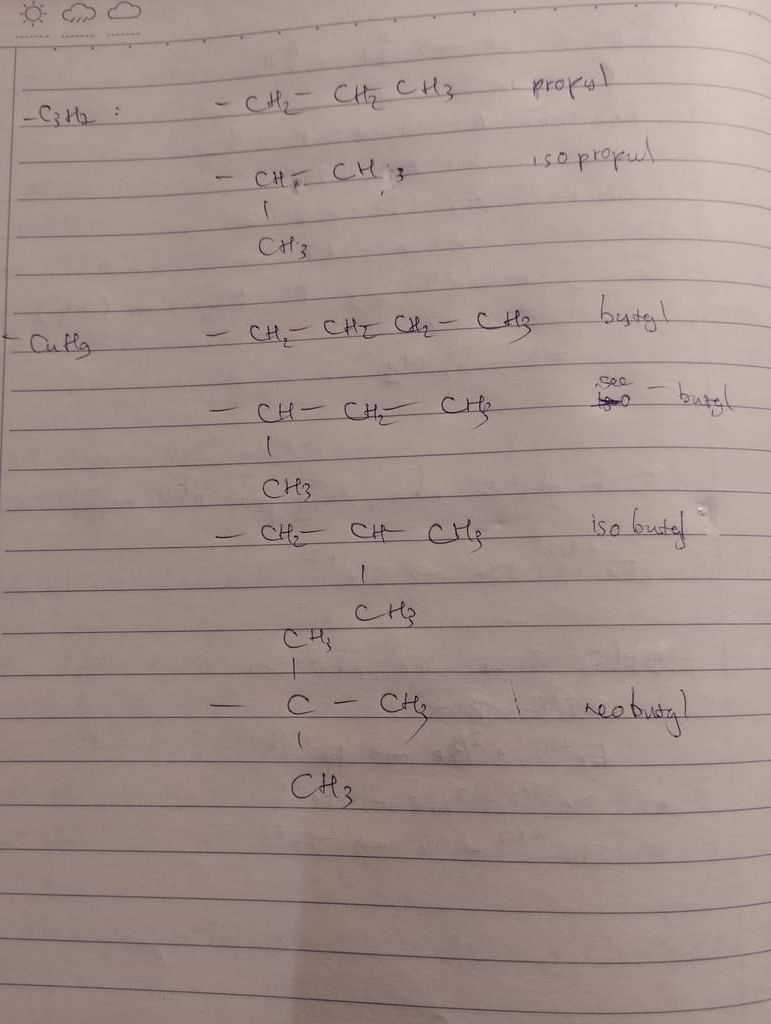 -C3H2 : - CH2 - CH2 CH3 propyl
- CH - CH3 isopropyl
|
CH3
- C4H9 - CH2 - CH2 CH2 - CH3 butyl
- CH - CH2 - CH3 sec - butyl
|
CH3
- CH2 - CH - CH3 isobutyl
|
CH3
CH3
|
- C - CH3 neobutyl
|
CH3